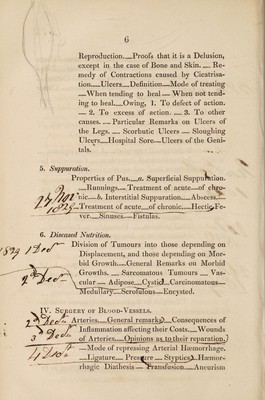 6
Reproduction.—Proofs that it is a Delusion,
except in the case of Bone and Skin. — Re-
medy of Contractions caused by Cicatrisa-
tion.—Ulcers.—Definition—Mode of treating
—When tending to heal — When not tend-
ing to heal.—Owing, 1. To defect of action.
— 2. To excess of action. — 3. To other
causes. — Particular Remarks on Ulcers of
the Legs. — Scorbutic Ulcers — Sloughing
Ulcers.—Hospital Sore.—Ulcers of the Geni-
tals.
5. Suppuration.
Properties of Pus.—a. Superficial Suppuration.
—Runnings.—Treatment of acute—of chro-
nic—b. Interstitial Suppuration.—Abscess.—
Treatment of acute—of chronic.—Hectic Fe-
ver.—Sinuses—Fistulas.
6. Diseased Nutrition.
1 Decr
Division of Tumours into those depending on
Displacement, and those depending on Mor-
bid Growth.—General Remarks on Morbid
Growths. — Sarcomatous Tumours — Vas-
cular — Adipose.—Cystic—Carcinomatous—
Medullary—Scrofulous—Encysted.
IV. Surgery of Blood-Vessels.
Arteries.—General remarks.—Consequences of
Inflammation affecting their Coats.—Wounds
of Arteries.—Opinions as to their reparation.
—Mode of repressing Arterial Hæmorrhage.
—Ligature.— Pressure — Styptics.—Hæmor-
rhagic Diathesis — Transfusion.—Aneurism